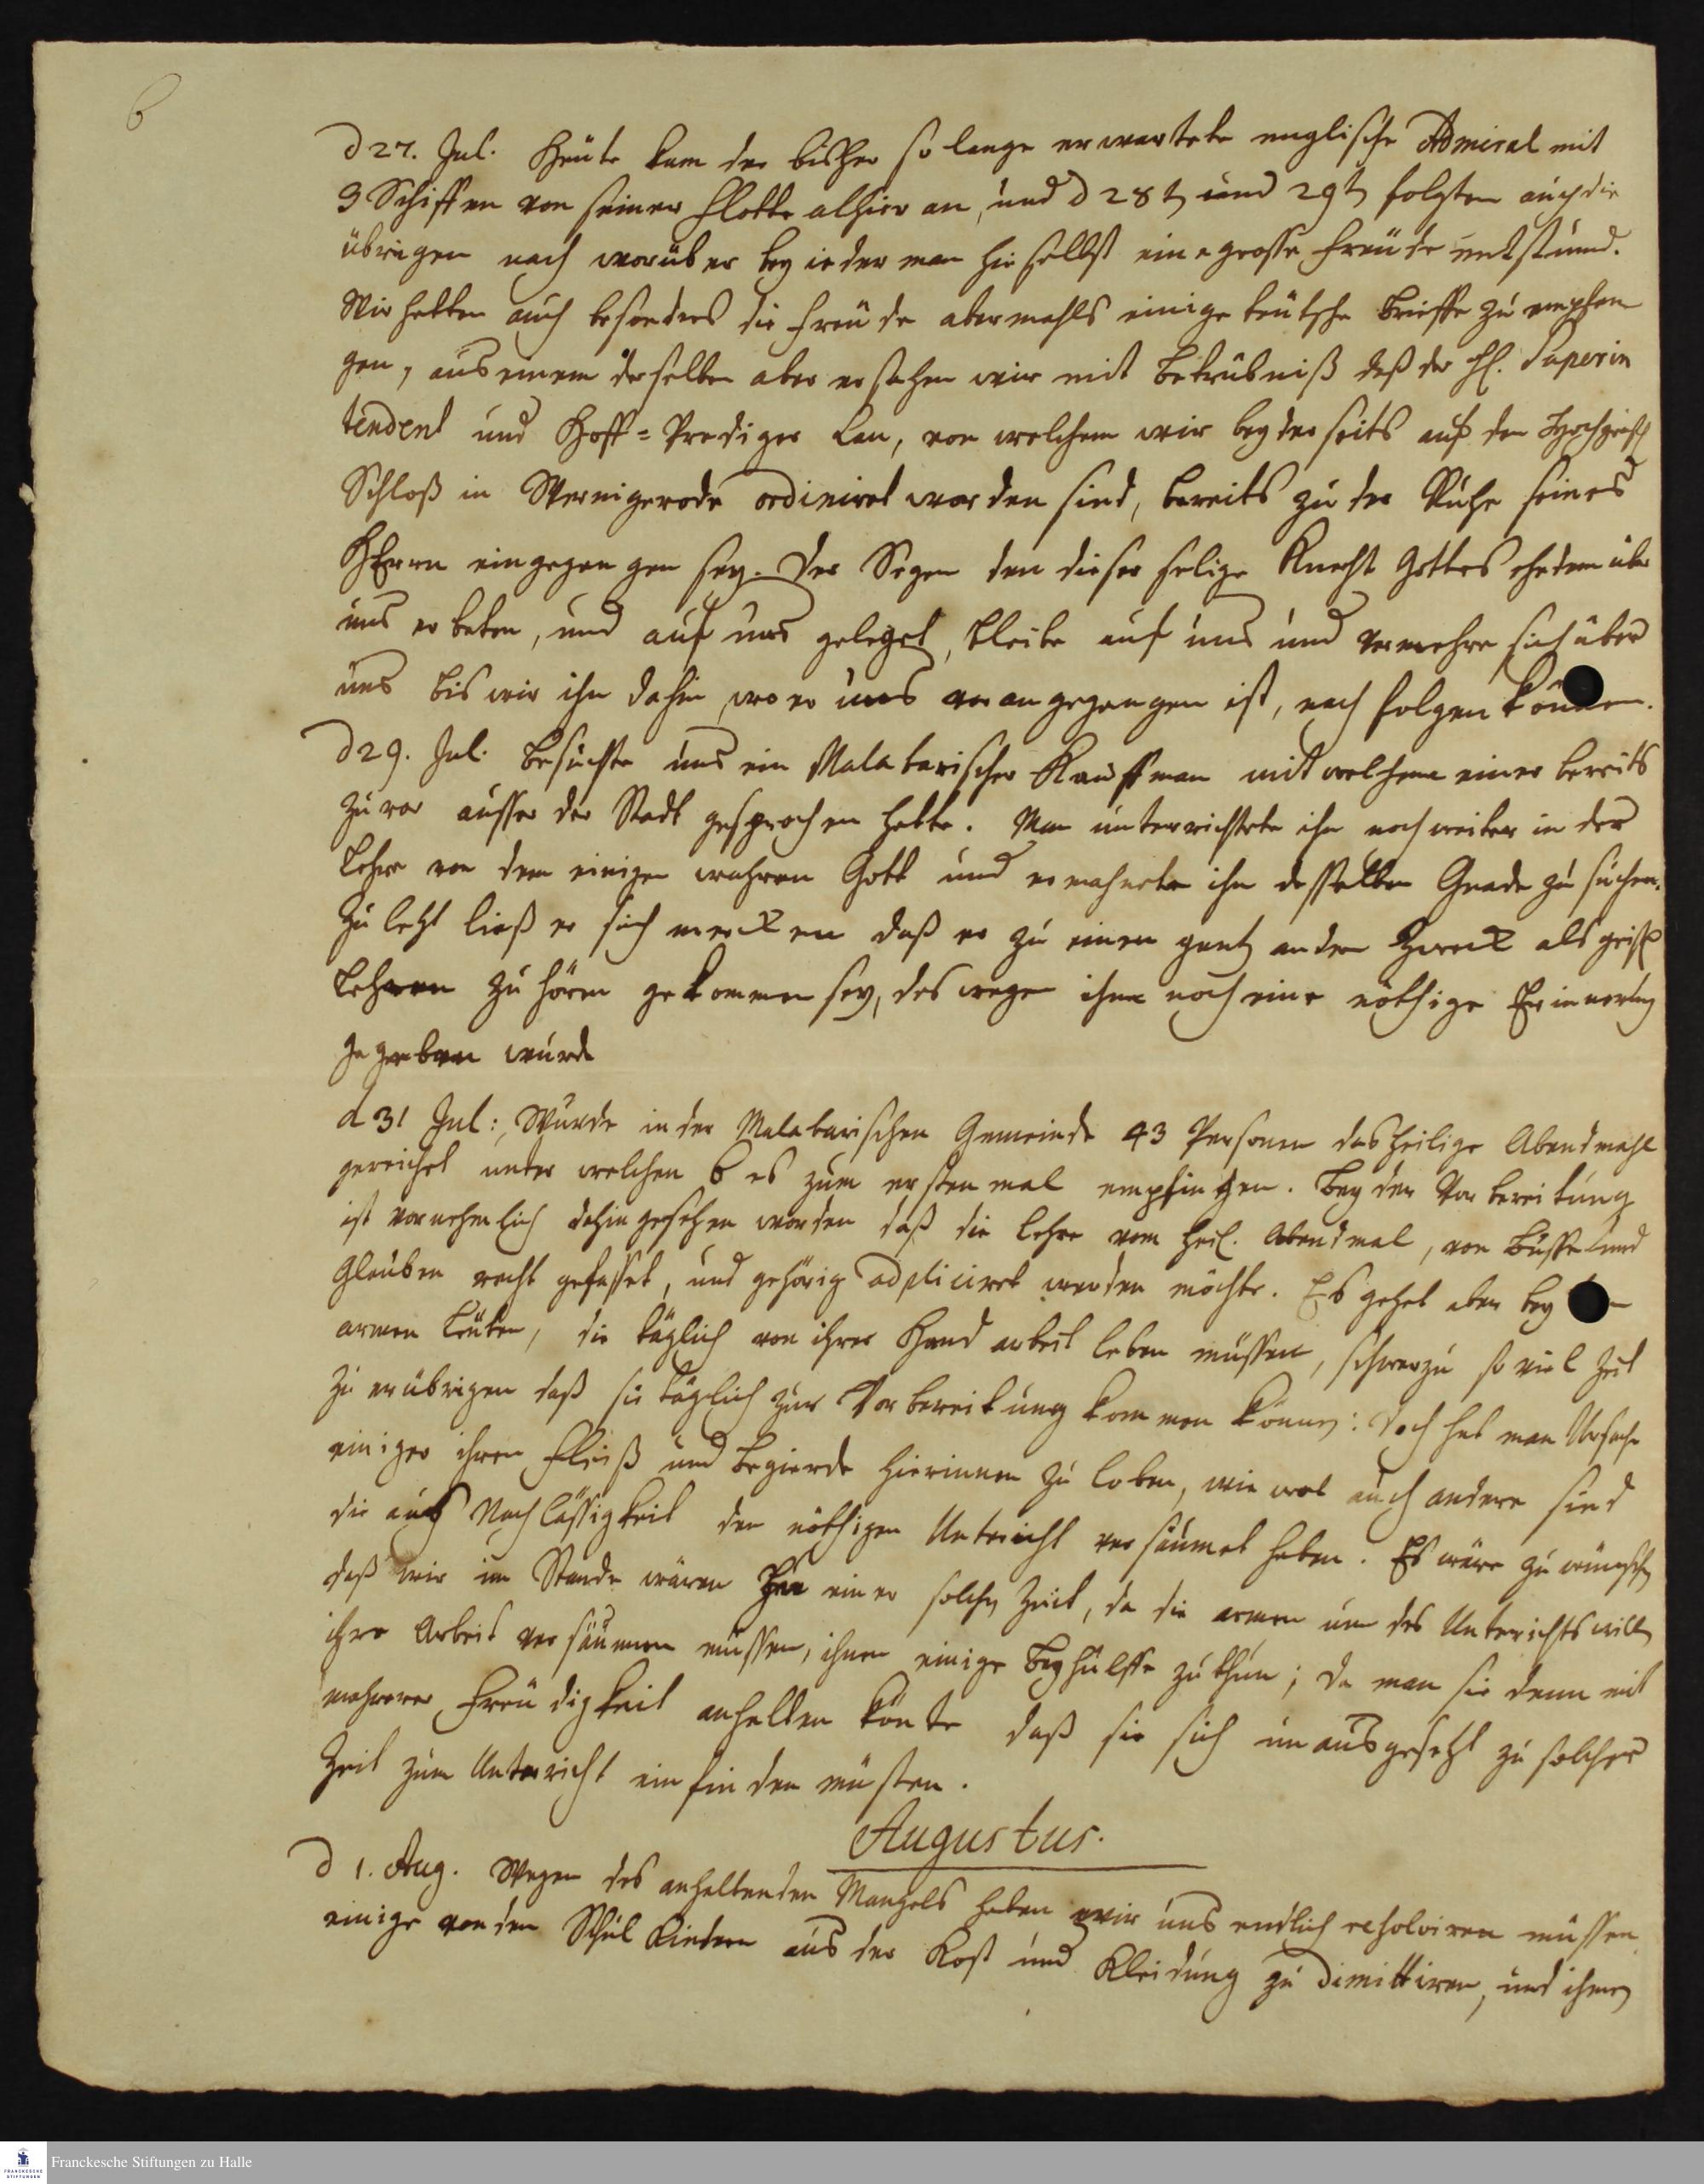 6
d 27. Jul. Heute kam der bisher so lange erwartete englische Admiral mit
9 Schiffen von seiner Flotte alhier an, und d 28t und 29t folgten auch die
übrigen nach worüber bey iederman hieselbst eine grosse Freude entstund.
Wir hatten auch besonders die Freude abermahls einige teutsche Brieffe zu empfan
gen, aus einem derselben aber ersahen wir mit Betrübniß daß der H. Superin
tendent und Hoff=Prediger Lau, von welchem wir beyderseits auf dem Hochgräfl
Schloß in Wernigerode ordiniret worden sind, bereits zu der Ruhe seines
HErrn eingegangen sey. Der Segen den dieser selige Knecht Gottes ehedem über
uns erbeten, und auf uns geleget, bleibe auf uns und vermehre sich über
uns bis wir ihm dahin, wo er uns vorangegangen ist, nach folgen können.
d 29. Jul. Besuchte uns ein Malabarischer Kauffman mit welchem einer bereits
zuvor ausser der Stadt gesprochen hatte. Man unterrichtete ihn noch weiter in der
Lehre von dem einigen wahren Gott und ermahnete ihn desselben Gnade zu suchen.
Zu letzt ließ er sich mercken daß er zu einen gantz andern Zweck als geistl
Lehren zu hören gekommen sey, deswegen ihm noch eine nöthige Erinnerung
gegeben wurde
d 31 Jul: Wurde in der Malabarischen Gemeinde 43 Personen das heilige Abendmahl
gereichet unter welchen 6 es zum erstenmal empfingen. Bey der Vorbereitung
ist vornehmlich dahin gesehen worden daß die Lehre vom heil. Abendmal, von Busse und
Glauben recht gefasset, und gehörig adpliciret werden möchte. Es gehet aber bey
armen Leuten, die täglich von ihrer Hand arbeit leben müssen, schwer zu so viel Zeit
zu erübrigen daß sie täglich zur Vorbereitung kommen können: Doch hat man Ursache
einiger ihren Fleiß und Begierde hierinnen zu loben, wie wol auch andere sind
die aus Nachlässigkeit den nöthigen Unterricht versäumet haben. Es wäre zu wünschen
daß wir im Stande wären zu einer solchen Zeit, da die armen um des Unterichts willen
ihre Arbeit versäumen müssen, ihnen einige Beyhülffe zu thun; da man sie denn mit
mehrerer Freudigkeit anhalten könte daß sie sich unausgesetzt zu solcher
Zeit zum Unterricht einfinden müsten.
Augustus.
d 1. Aug. Wegen des anhaltenden Mangels haben wir uns endlich resolviren müssen
einige von den Schul Kindern aus der Kost und Kleidung zu dimittiren, und ihnen
FRANCKESCHE STIFTUNGEN
Franckesche Stiftungen zu Halle